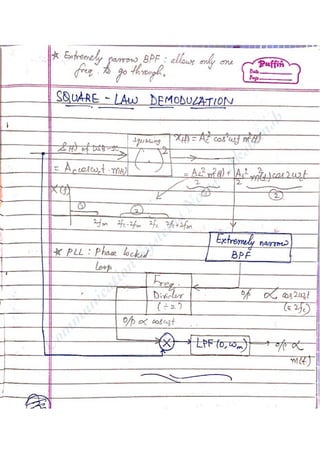 * Extremely narrow BPF : allows only one
freq. to go through.
Puffin
Date
Page
SQUARE - LAW DEMODULATION
S(t) of DSB-SC
= Ac cosωct · m(t)
Squaring
X(t) = Ac² cos²ωct m²(t)
= Ac²/2 m²(t) + Ac²/2 m²(t) cos2ωct
① ②
X(f)
① ②
2fm 2fc-2fm 2fc 2fc+2fm
Extremely narrow
BPF
* PLL : Phase locked
loop
Freq.
Divider
(÷2)
O/p ∝ cos2ωct
(=2fc)
O/p ∝ cosωct
X
LPF (0, ωm)
O/p ∝
m(t)